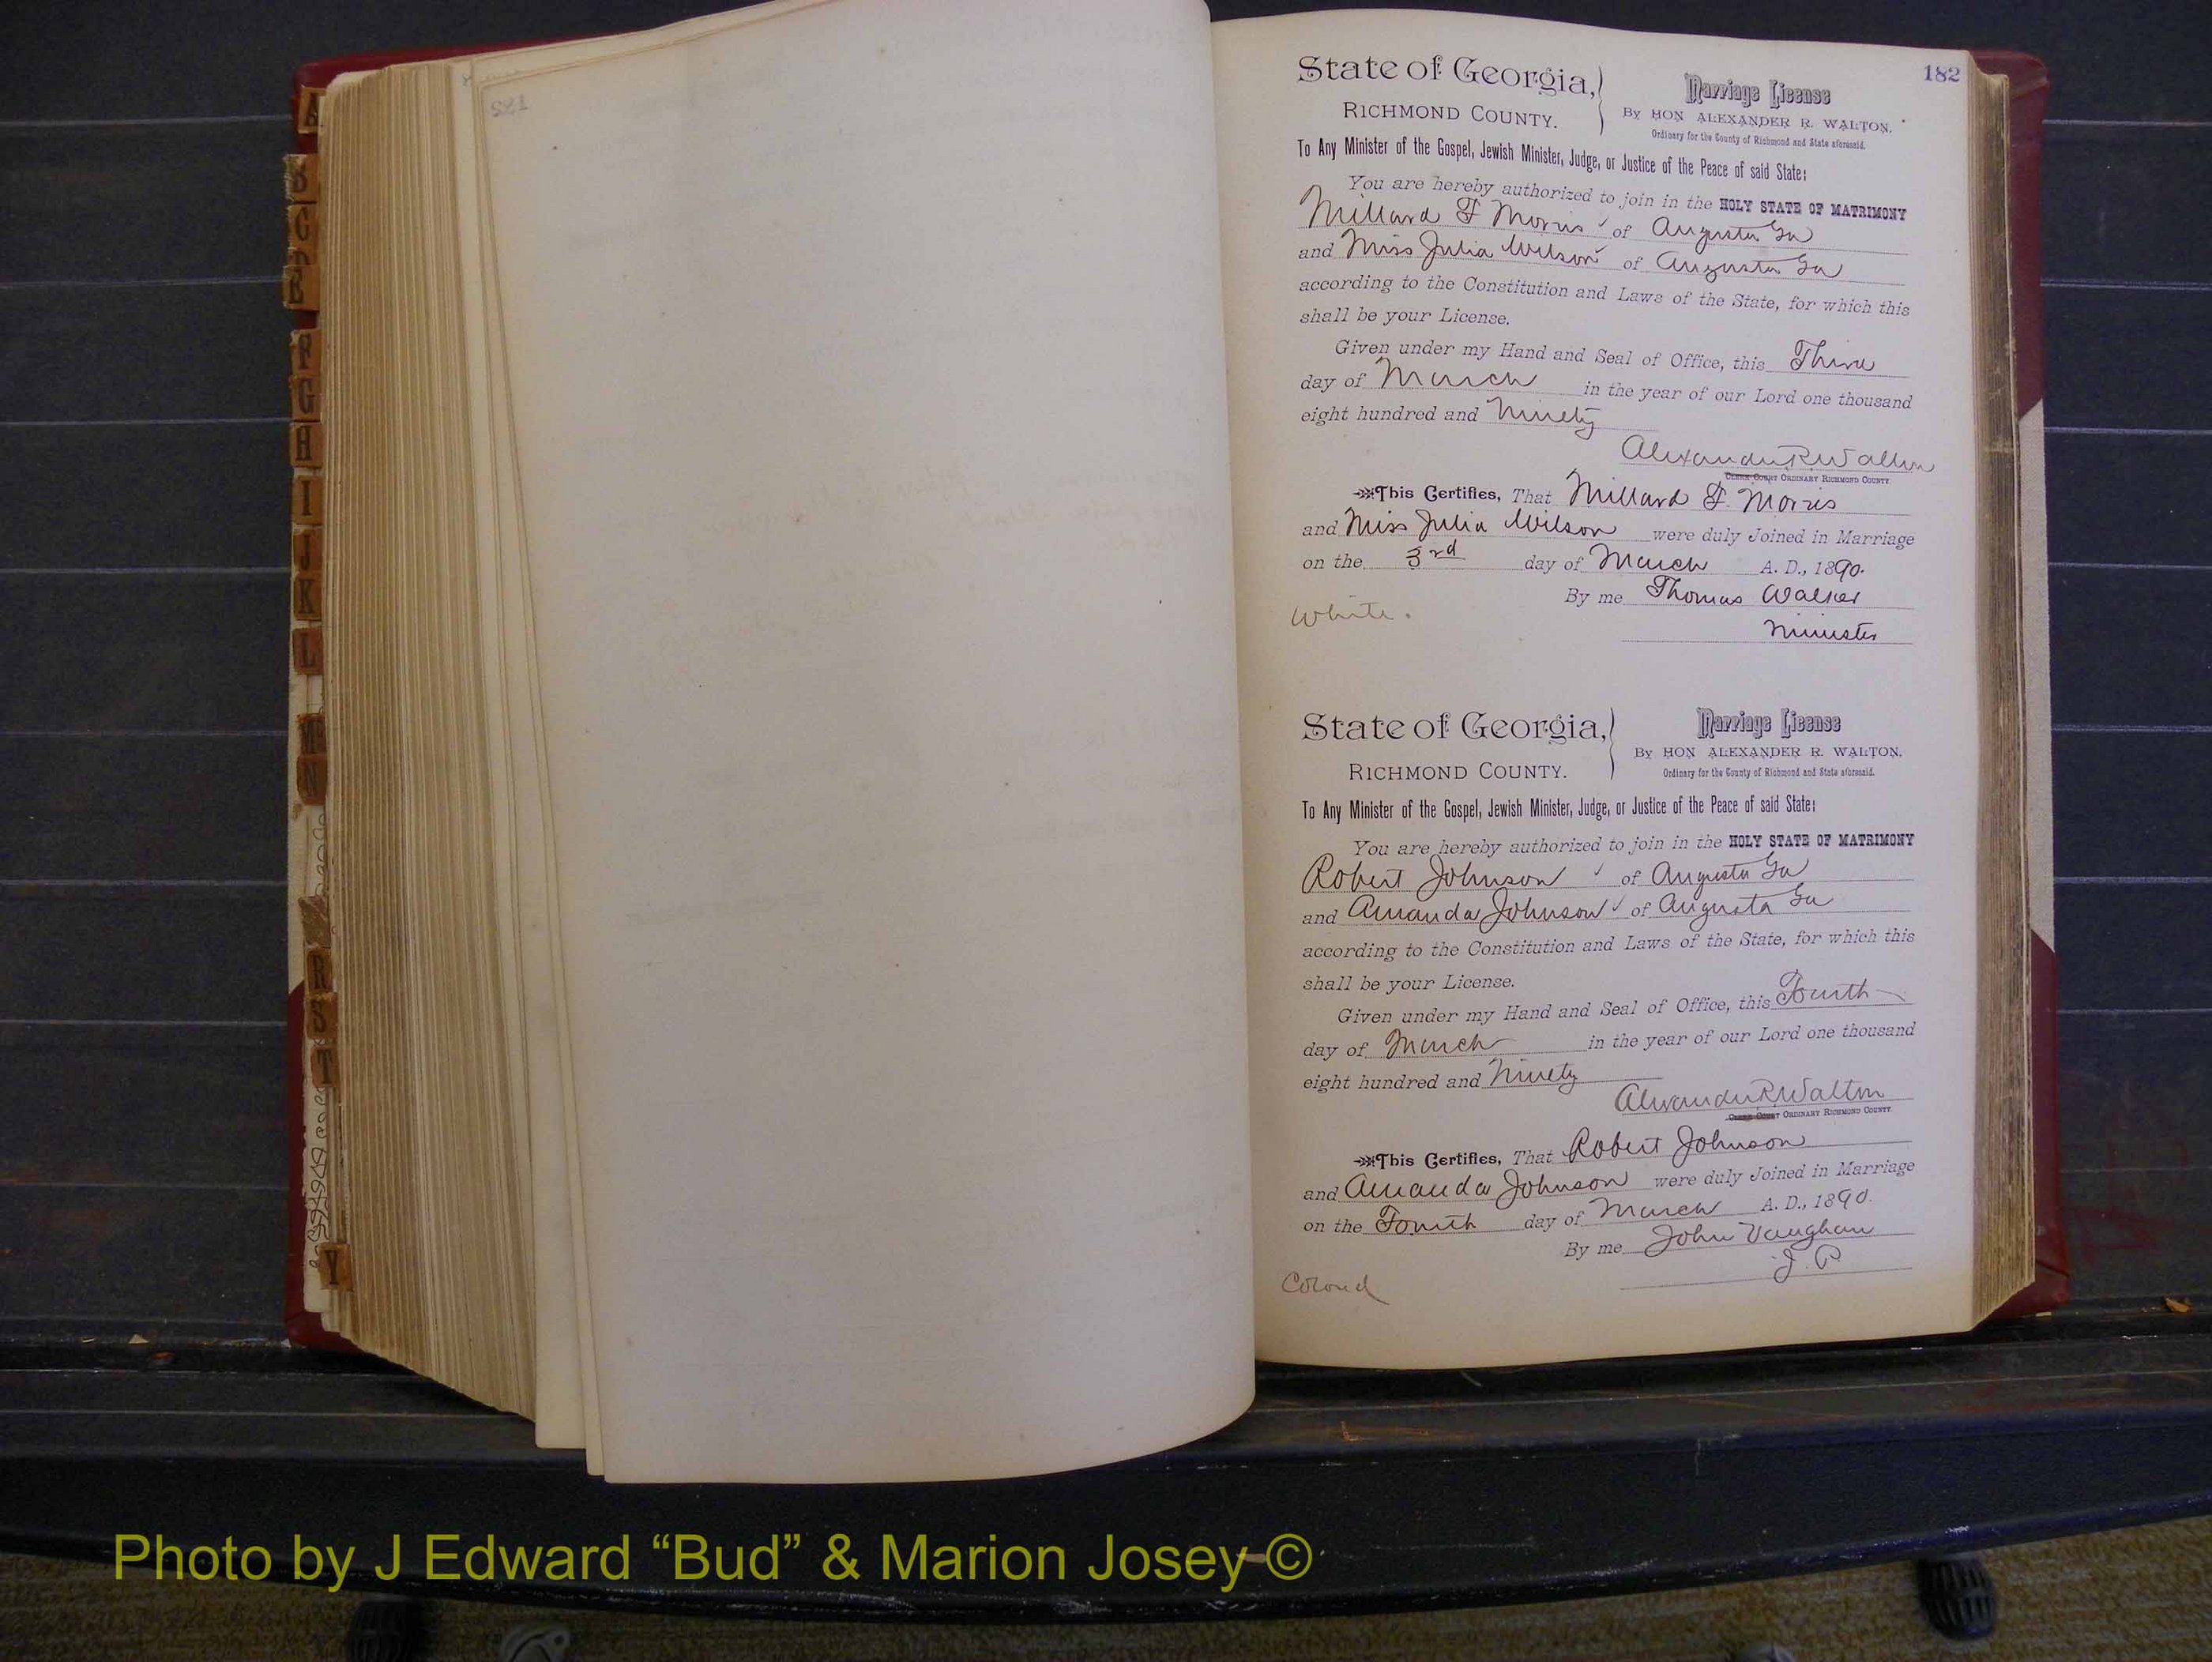 A
B
C
D
E
F
G
H
I
J
K
L
Mc
N
R
S
T
Y
182
State of Georgia,
RICHMOND COUNTY.
Marriage License
By HON ALEXANDER R. WALTON.
Ordinary for the County of Richmond and State aforesaid.
To Any Minister of the Gospel, Jewish Minister, Judge, or Justice of the Peace of said State:
You are hereby authorized to join in the HOLY STATE OF MATRIMONY
Millard F Morris of Augusta Ga
and Miss Julia Wilson of Augusta Ga
according to the Constitution and Laws of the State, for which this
shall be your License.
Given under my Hand and Seal of Office, this Third
day of March in the year of our Lord one thousand
eight hundred and Ninety
Alexander R Walton
CLERK COURT ORDINARY RICHMOND COUNTY.
This Certifies, That Millard F. Morris
and Miss Julia Wilson were duly Joined in Marriage
on the 3rd day of March A. D., 1890.
By me Thomas Walker
Minister
White.
State of Georgia,
RICHMOND COUNTY.
Marriage License
By HON ALEXANDER R. WALTON,
Ordinary for the County of Richmond and State aforesaid.
To Any Minister of the Gospel, Jewish Minister, Judge, or Justice of the Peace of said State:
You are hereby authorized to join in the HOLY STATE OF MATRIMONY
Robert Johnson of Augusta Ga
and Amanda Johnson of Augusta Ga
according to the Constitution and Laws of the State, for which this
shall be your License.
Given under my Hand and Seal of Office, this Fourth
day of March in the year of our Lord one thousand
eight hundred and Ninety
Alexander R Walton
CLERK COURT ORDINARY RICHMOND COUNTY.
This Certifies, That Robert Johnson
and Amanda Johnson were duly Joined in Marriage
on the Fourth day of March A. D., 1890.
By me John Vaughan
J. P
Colored
Photo by J Edward “Bud” & Marion Josey ©